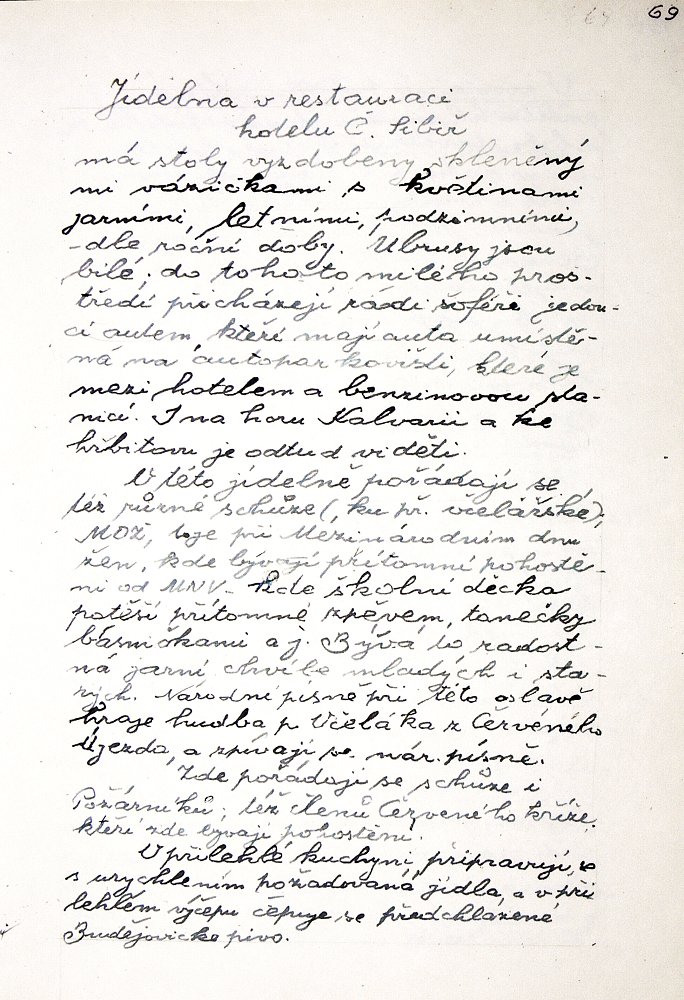 69
Jídelna v restauraci
hotelu Č. Sibiř
má stoly vyzdobeny skleněný
mi vázičkami s květinami
jarními, letními, podzimními,
-dle roční doby. Ubrusy jsou
bílé; do tohoto milého pros-
tředí přicházejí rádi šoféři jedou-
cí autem, kteří mají auta umístě-
ná na autoparkovišti, které je
mezi hotelem a benzinovou sta-
nicí. I na horu Kalvarii a ke
hřbitovu je odtud viděti.
V této jídelně pořádají se
též různé schůze (ku př. včelářské),
MDŽ, to je při Mezinárodním dnu
žen, kde bývají přítomní pohostě-
ni od MNV. Kde školní děcka
potěší přítomné zpěvem, tanečky
básničkami a j. Bývá to radost-
ná jarní chvíle mladých i sta-
rých. Národní písně při této oslavě
hraje hudba p. Včeláka z Červeného
Újezda, a zpívají se nár. písně.
Zde pořádají se schůze i
Požárníků; též členů Červeného kříže,
kteří zde bývají pohostěni.
V přilehlé kuchyni připravují se
s urychlením požadovaná jídla, a v při
lehlém výčepu čepuje se předchlazené
Budějovické pivo.